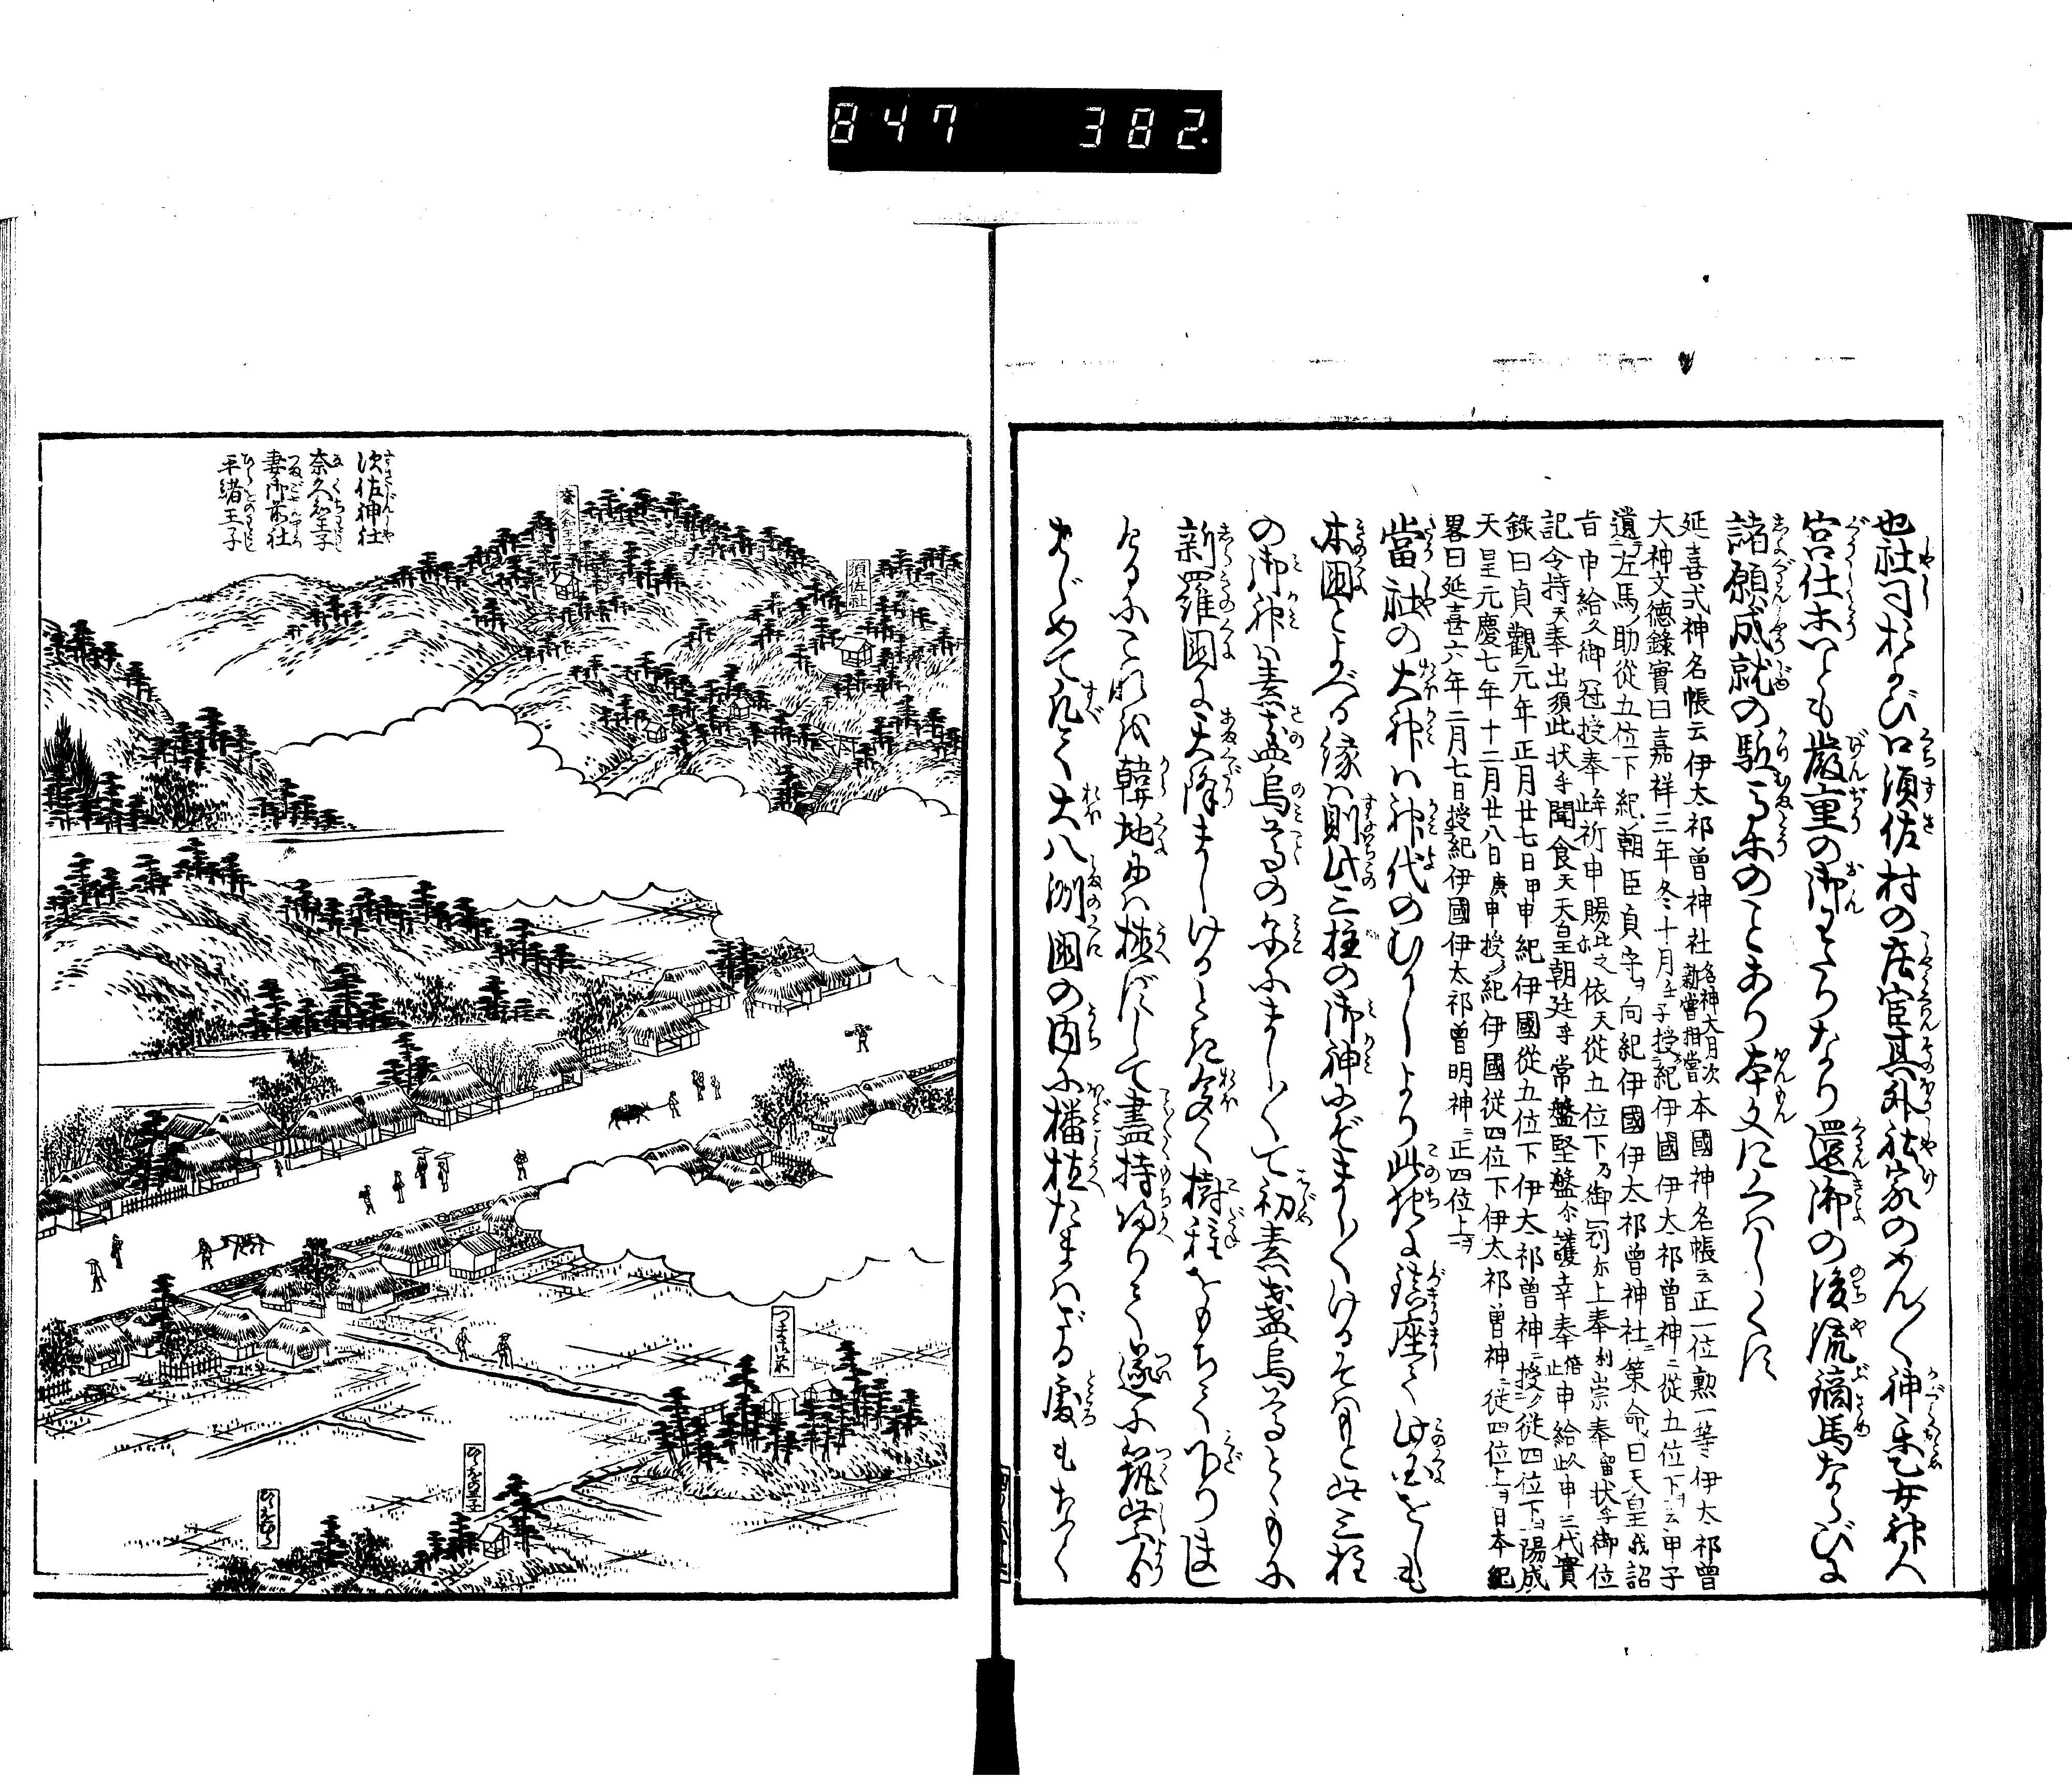 847 382.
也社司ならび口須佐村の庄官其外社家のめん〱神楽乙女神人
宮仕等いとも厳重の御わたりなり還御の後流鏑馬ならびに
諸願成就の駈馬等のことあり本文にくはしくす
延喜式神名帳云伊太祁曾神社名神大月次
新嘗相嘗本國神名帳云正一位勲一等伊太祁曾
大神文徳錄實曰嘉祥三年冬十月壬子授紀伊國伊太祁曾神ニ從五位下ヲ云甲子
遣左馬助從五位下紀朝臣貞守ヲ向紀伊國伊太祁曾神社ニ策命曰天皇我詔
旨申給久御冠授奉 祈申賜 依天從五位下乃御 尓上奉利崇奉 状乎御位
記令持天奉出須此状乎聞食天天皇朝廷乎常盤堅盤尓護幸奉 申給 申三代實
錄曰貞觀元年正月廿七日甲申紀伊國從五位下伊太祁曾神ニ授從四位下ヲ陽成
天皇元慶七年十二月廿八日庚申授紀伊國從四位下伊太祁曾神ニ從四位上ヲ日本紀
畧曰延喜六年二月七日授紀伊國伊太祁曾明神ニ正四位上ヲ
當社の大神は神代のむかしより此地に鎮座て此国をしも
木国とよべる縁は則此三柱の御神にぞましくけるそはもと此三柱
の御神は素盞烏尊の御子にましくて初素盞烏尊とともに
新羅国に天降ましけるとき多く樹種をもちて下りまし
けるにこれを韓地には植ずして盡持帰りて遂に筑紫より
はじめて凡て大八洲国の内に播植たまはざる處もなく
須佐神社
奈久知王子
妻御前社
平緒王子
奈久知王子
須佐社
つま御前
ひらをの王子
ひらをむら